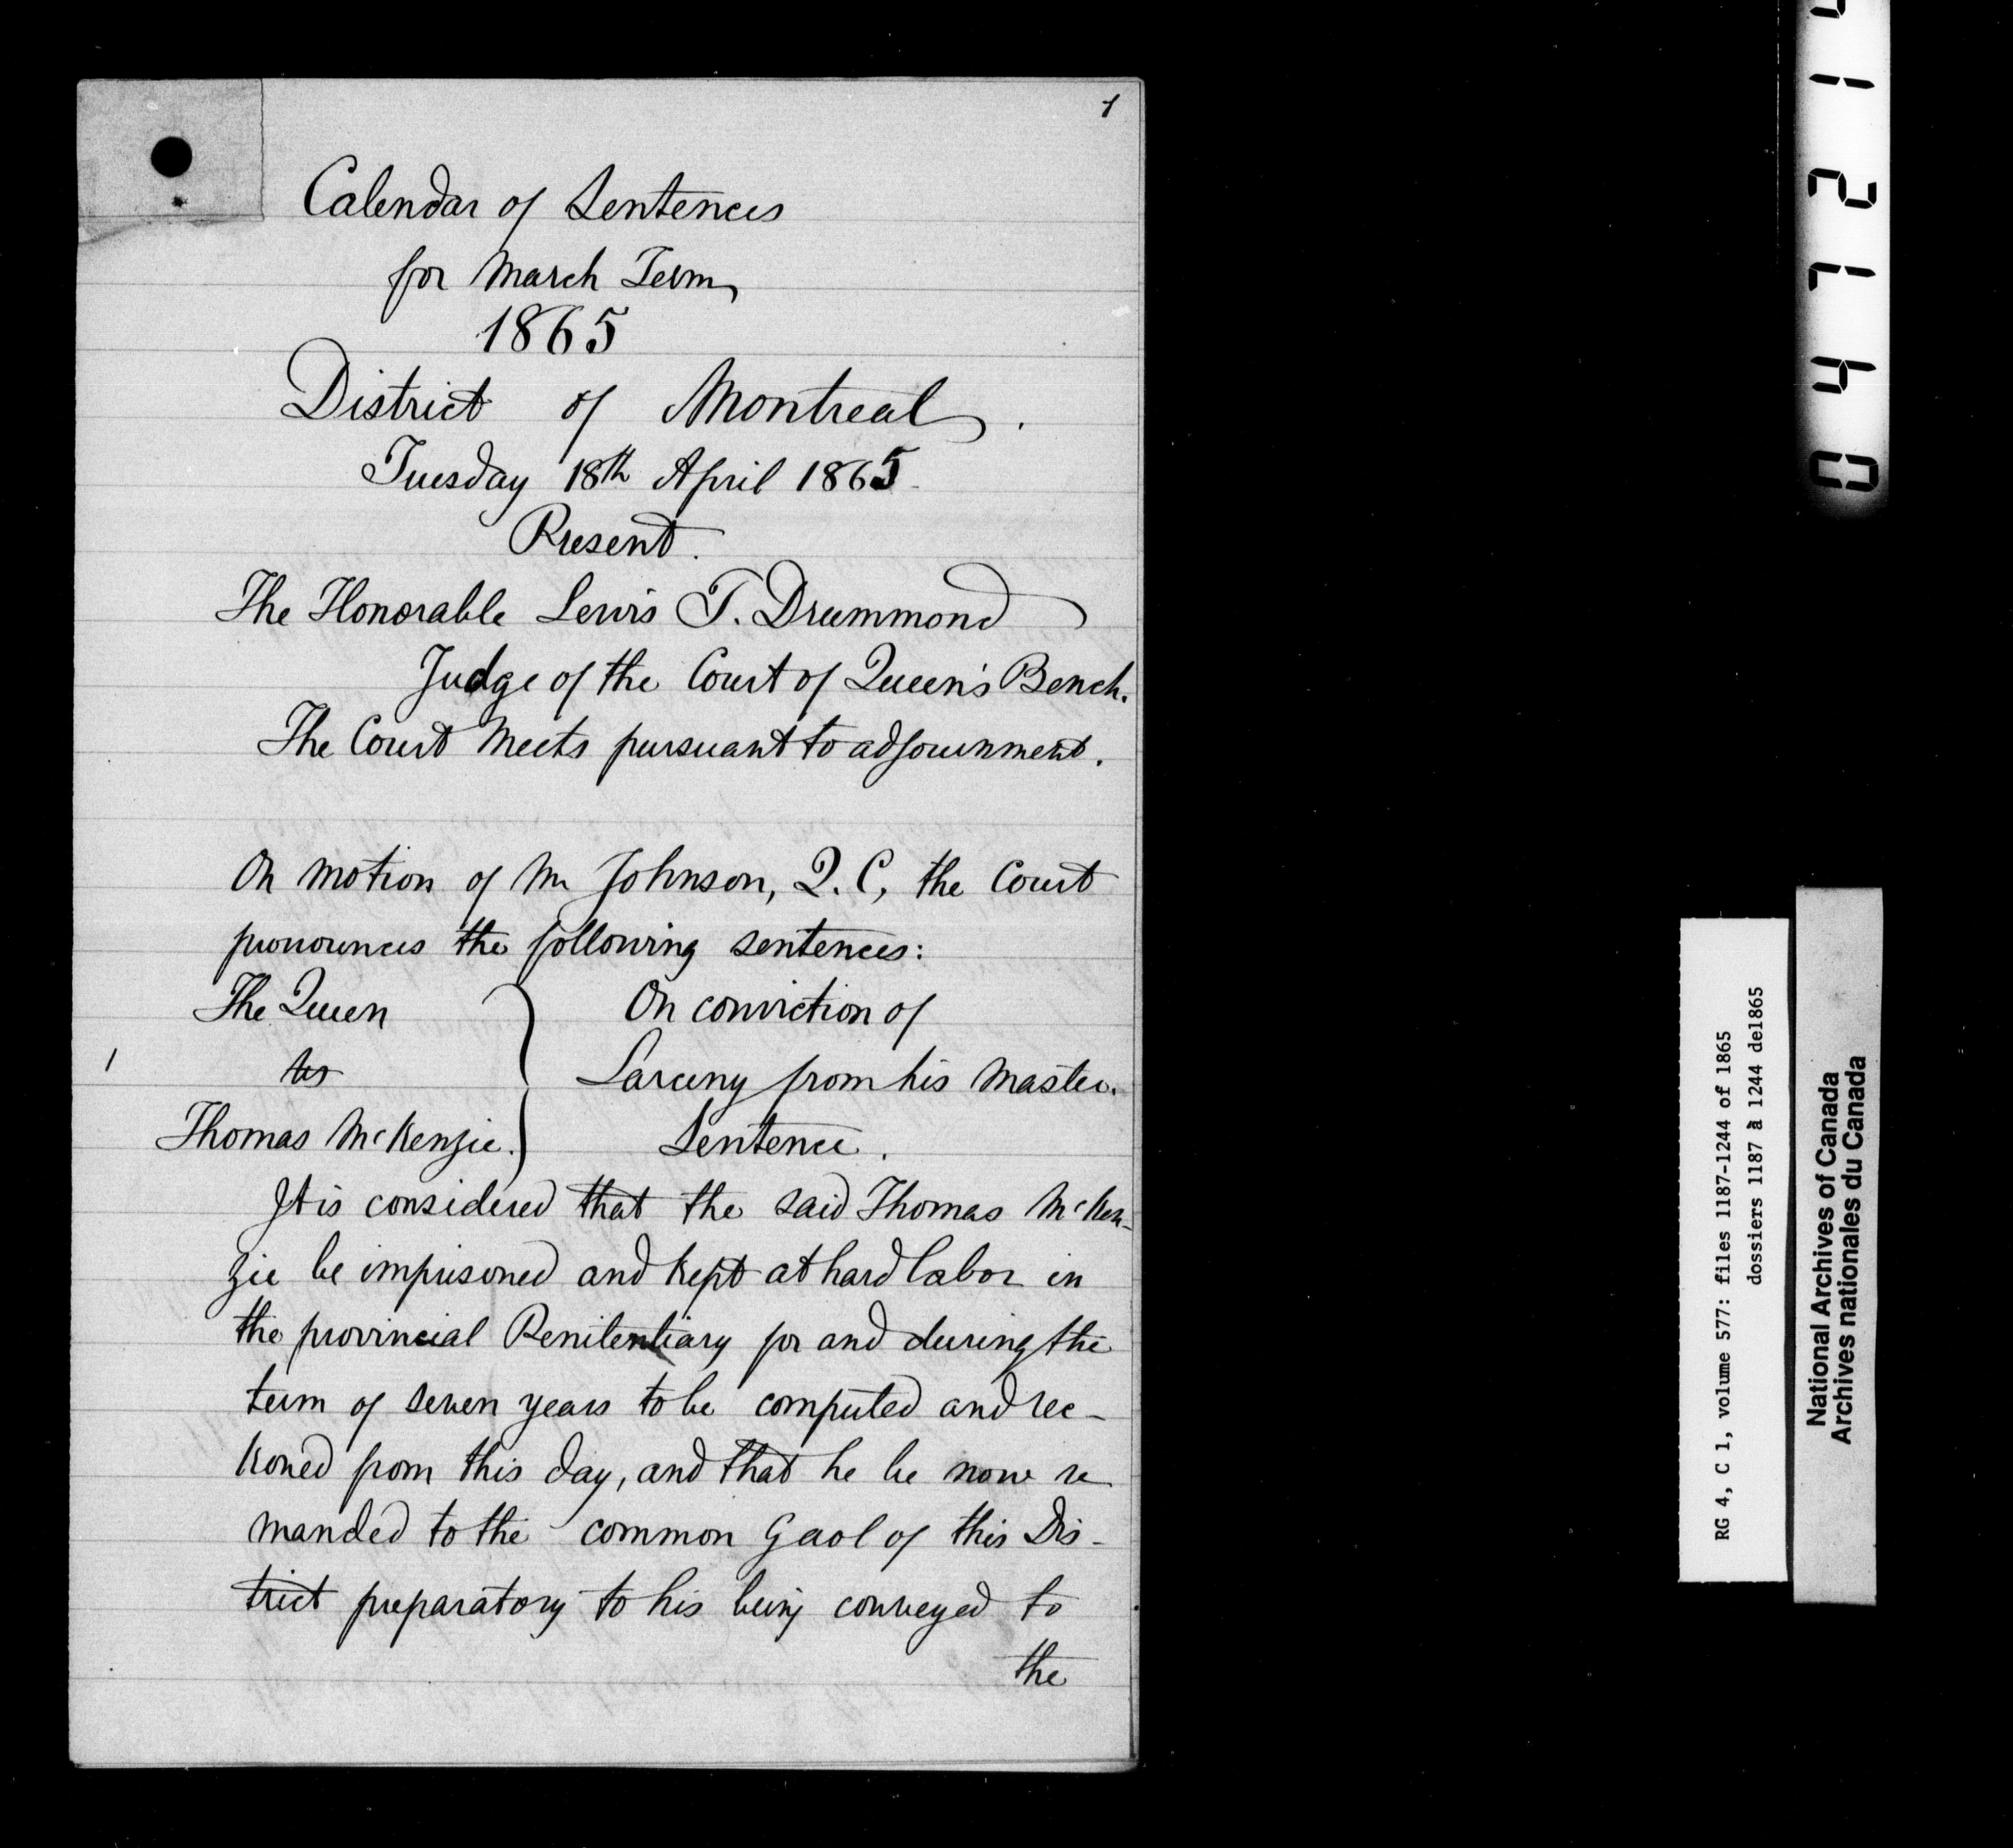 1
Calendar of Sentences
for March Term
1865
District of Montreal.
Tuesday 18th April 1865
Present.
The Honorable Lewis T. Drummond
Judge of the Court of Queen's Bench.
The Court meets pursuant to adjournment.
On motion of Mr Johnson, Q.C, the Court
pronounces the following sentences:
The Queen } On conviction of
1 vs Larceny from his Master.
Thomas McKenzie. } Sentence.
It is considered that the said Thomas McKen-
zie be imprisoned and kept at hard labor in
the provincial Penitentiary for and during the
term of seven years to be computed and rec-
koned from this day, and that he be now re
manded to the common Gaol of this Dis-
trict preparatory to his being conveyed to
the
RG 4, C 1, volume 577: files 1187-1244 of 1865
dossiers 1187 à 1244 de1865
National Archives of Canada
Archives nationales du Canada